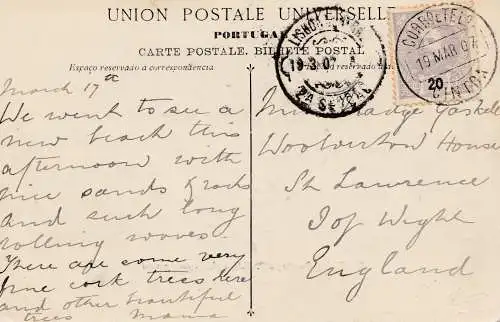 UNION POSTALE UNIVERSELLE
PORTUGAL
CARTE POSTALE. BILHETE POSTAL
Espaço reservado a correspondencia
LISBOA CENTRAL
19-3-07
2A SECÇÃO
CORREIO E TEL
19 MAR 07
CINTRA
20
March 17th
We went to see a
new beach this
afternoon with
nice sands & rocks
and such long
rolling waves.
There are some very
fine cork trees here
and other beautiful
trees Mama
Madge Gaskell
Woolverton House
St Lawrence
I of Wight
England